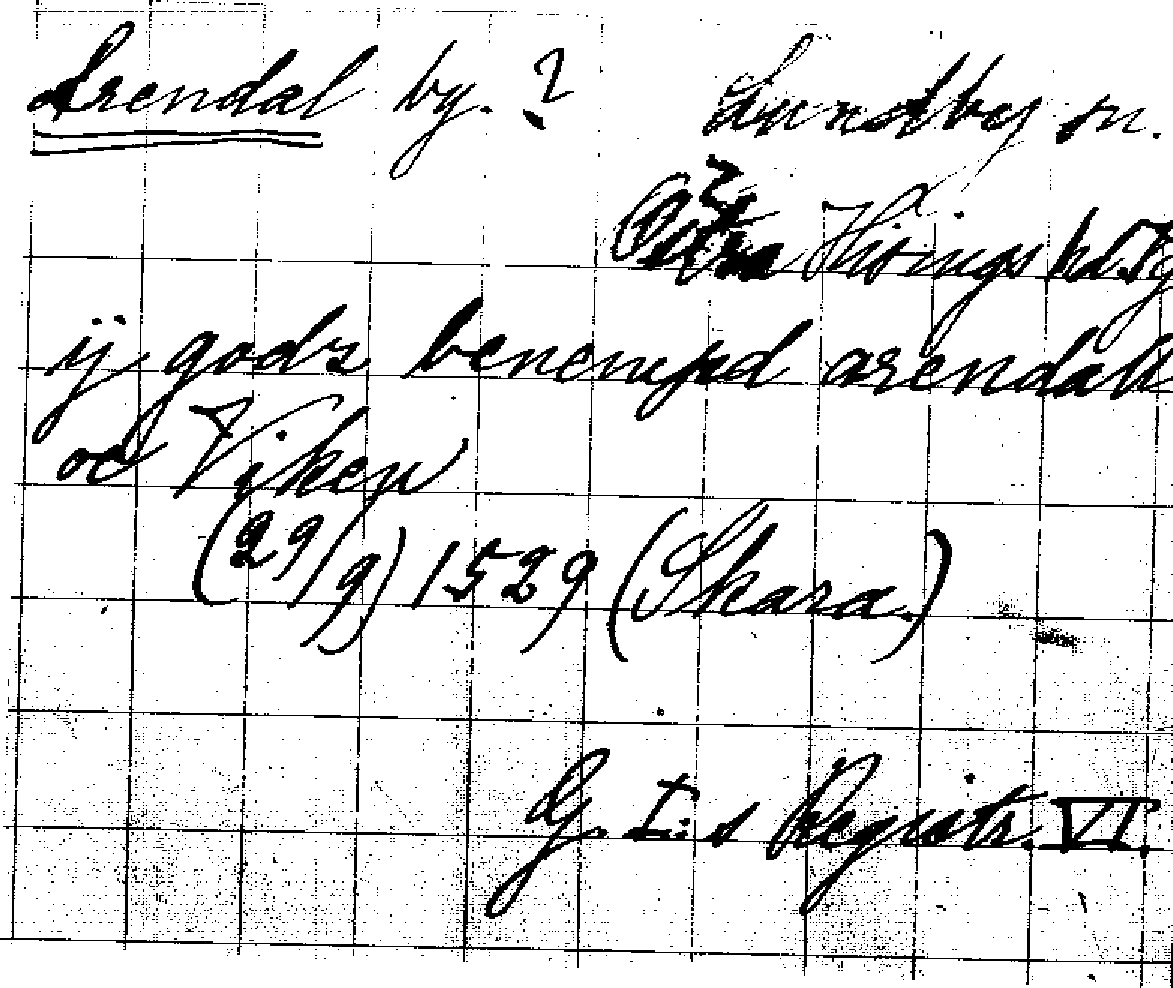 Arendal by. ? Lundby sn.
Östra Hisings hd.
ij godz benempd arendall
oc Viken
(29/9) 1529 (Skara.)
G. I:s Registr. VI.